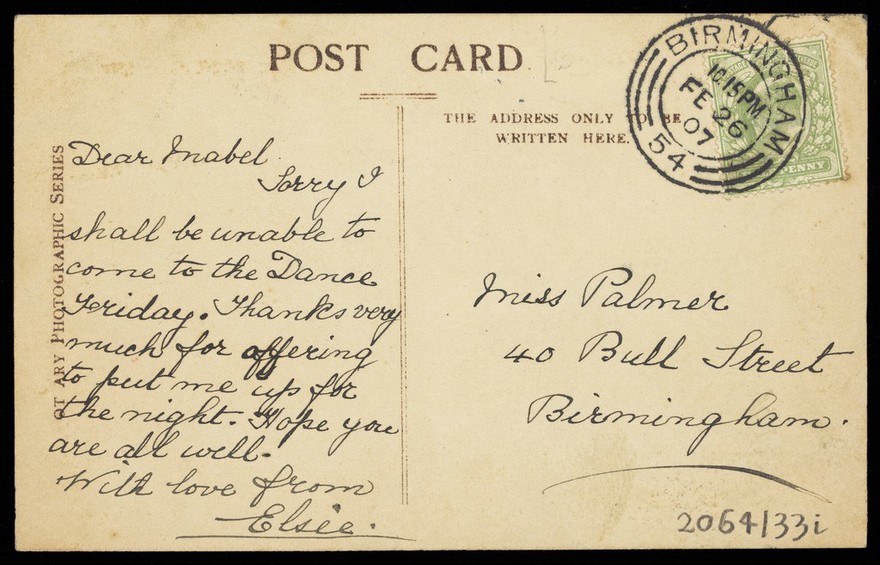 POST CARD
THE ADDRESS ONLY TO BE
WRITTEN HERE.
BIRMINGHAM
10.15PM
FE 26
07
54
PENNY
OT ARY PHOTOGRAPHIC SERIES
Dear Mabel
Sorry I
shall be unable to
come to the Dance
Friday. Thanks very
much for offering
to put me up for
the night. Hope you
are all well.
With love from
Elsie.
Miss Palmer
40 Bull Street
Birmingham.
2064/33i